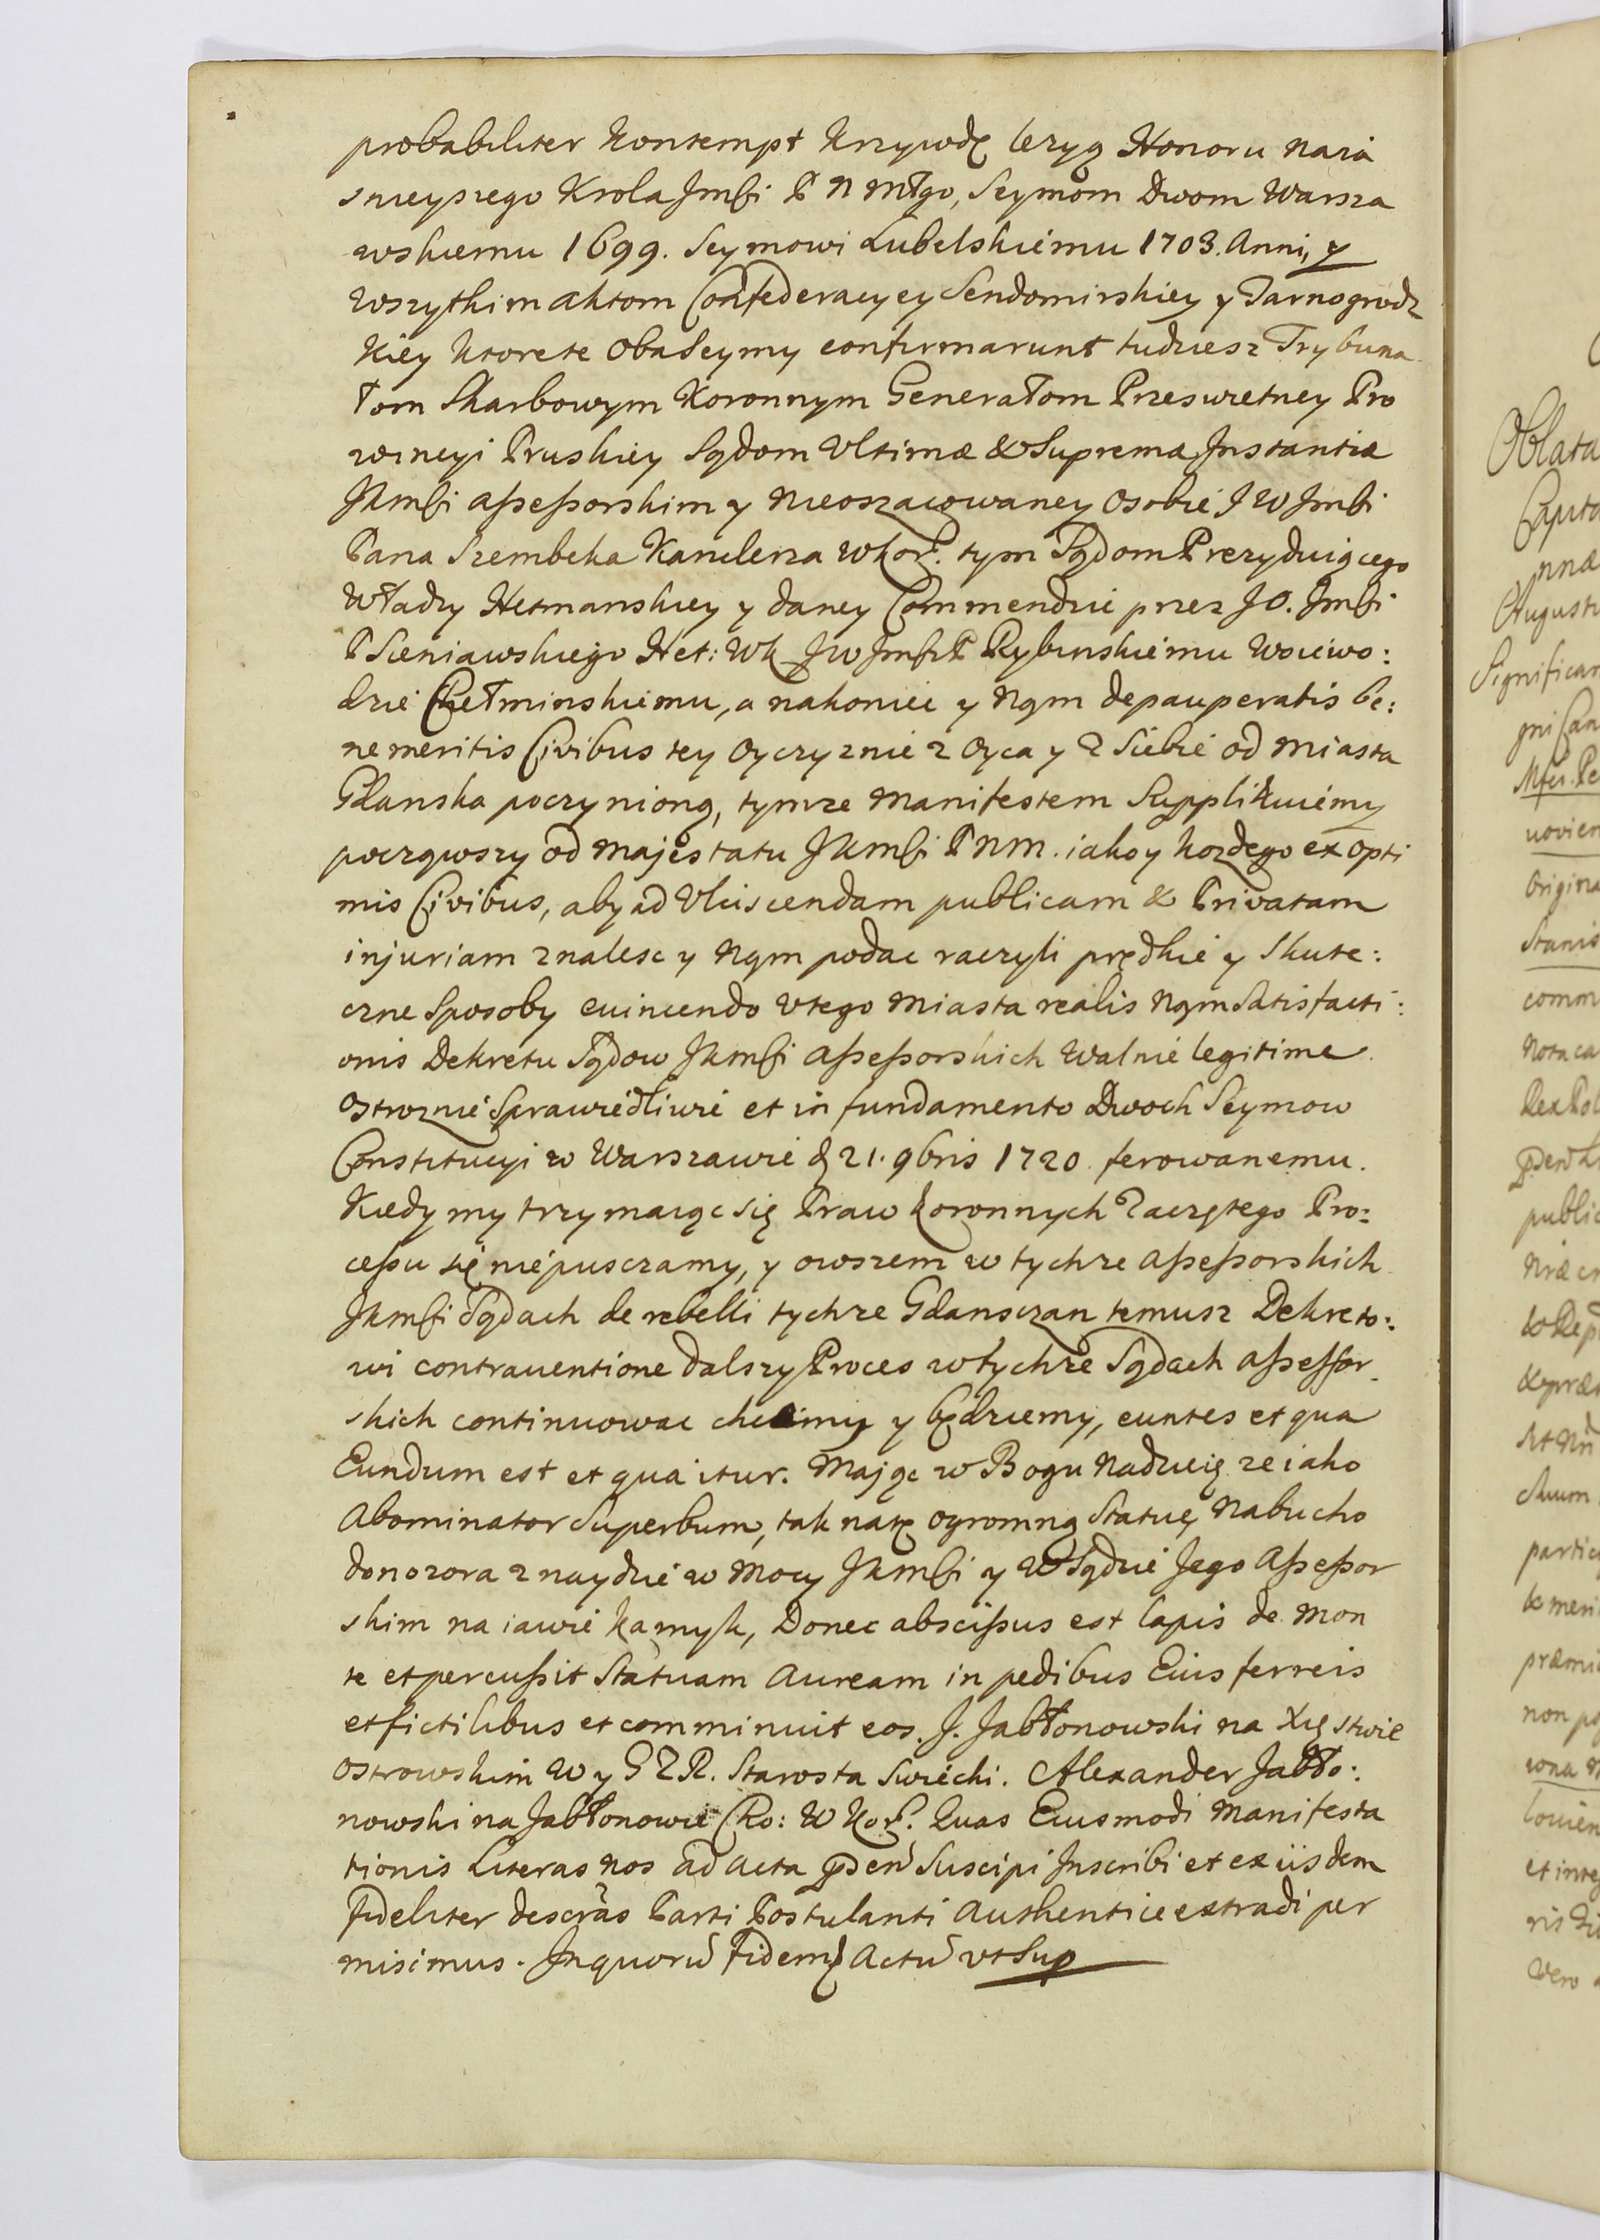 probabiliter Kontempt Krzywdę lezyą Honoru Naia
snieyszego Krola Jmsi P N Młgo, Seymom Dwom Warsza
wskiemu 1699. Seymowi Lubelskiemu 1703. Anni, y
Wszytkim aktom Confederacyey Sendomirskiey y Tarnogrodz
Kiey Ktorete Oba Seymy confirmarunt tudziesz Trybuna
łom Skarbowym Koronnym Generałom Przeswietney Pro
wincyi Pruskiey Sądom Vltimæ & Supremæ Instantiæ
JKmsi assessorskim y Nieoszacowaney Osobie J W Jmsi
Pana Szembeka Kanclerza WKor. tym Sądom Prezyduiącego
Władzy Hetmanskiey y daney Commendzie przez JO. Jmsi
P Sieniawskiego Het: Wk JW Jmsi P Rybinskiemu Woiewo:
dzie Chełminskiemu, a nakoniec y Nąm depauperatis be:
ne meritis Civibus tey Oyczyznie z Oyca y z Siebie od Miasta
Gdanska poczynioną, tymze Manifestem Supplikuiemy
począwszy od Majestatu JKmsi P N M. iako y kozdego ex opti
mis Civibus, aby ad Vlciscendam publicam & Privatam
injuriam znalesc y Nąm podac raczyli prędkie y Skute:
czne Sposoby evincendo v tego Miasta realis Nąm Satisfacti:
onis Dekretu Sądow JKmsi assessorskich Walnie legitime
Ostroznie Sprawiedliwie et in fundamento Dwoch Seymow
Constitucyi w Warszawie d 21. 9bris 1720. ferowanemu.
Kiedy my trzymaiąc się Praw Koronnych Zaczętego Pro:
cessu się nie pusczamy, y owszem w tychze assessorskich
JKmsi Sądach de rebelli tychze Gdansczan temusz Dekreto:
wi contraventione dalszy Proces w tychze Sądach assessor
skich continuowac chcemy y będziemy, euntes et qua
Eundum est et qua itur. Mając w Bogu Nadzieię ze iako
Abominator Superbum, tak na tę ogromną Statuę Nabucho
donozora znaydzie w Mocy JKmsi y w Sądzie Jego Assessor
skim na iawie kamyk, Donec abscissus est lapis de Mon
te et percussit Statuam Auream in pedibus Eius ferreis
et fictilibus et comminuit eos. J. Jabłonowski na Xięstwie
Ostrowskim W y G Z R. Starosta Swiecki. Alexander Jabło:
nowski na Jabłonowie Cho: W Kor. Quas Eiusmodi Manifesta
tionis Literas Nos ad Acta Suscipi Inscribi et ex iisdem
fideliter descras Parti Postulanti Authentice extradi per
misimus. In quoru Fidem Actu vt Sup
Oblata
Capita
Augusti
Significan
gni Can
Mfci. Pe
novien
Origina
Stanis
comm
Nota ca
Rex Pol
public
partic
& meri
præmi
non po
et integ
Vero